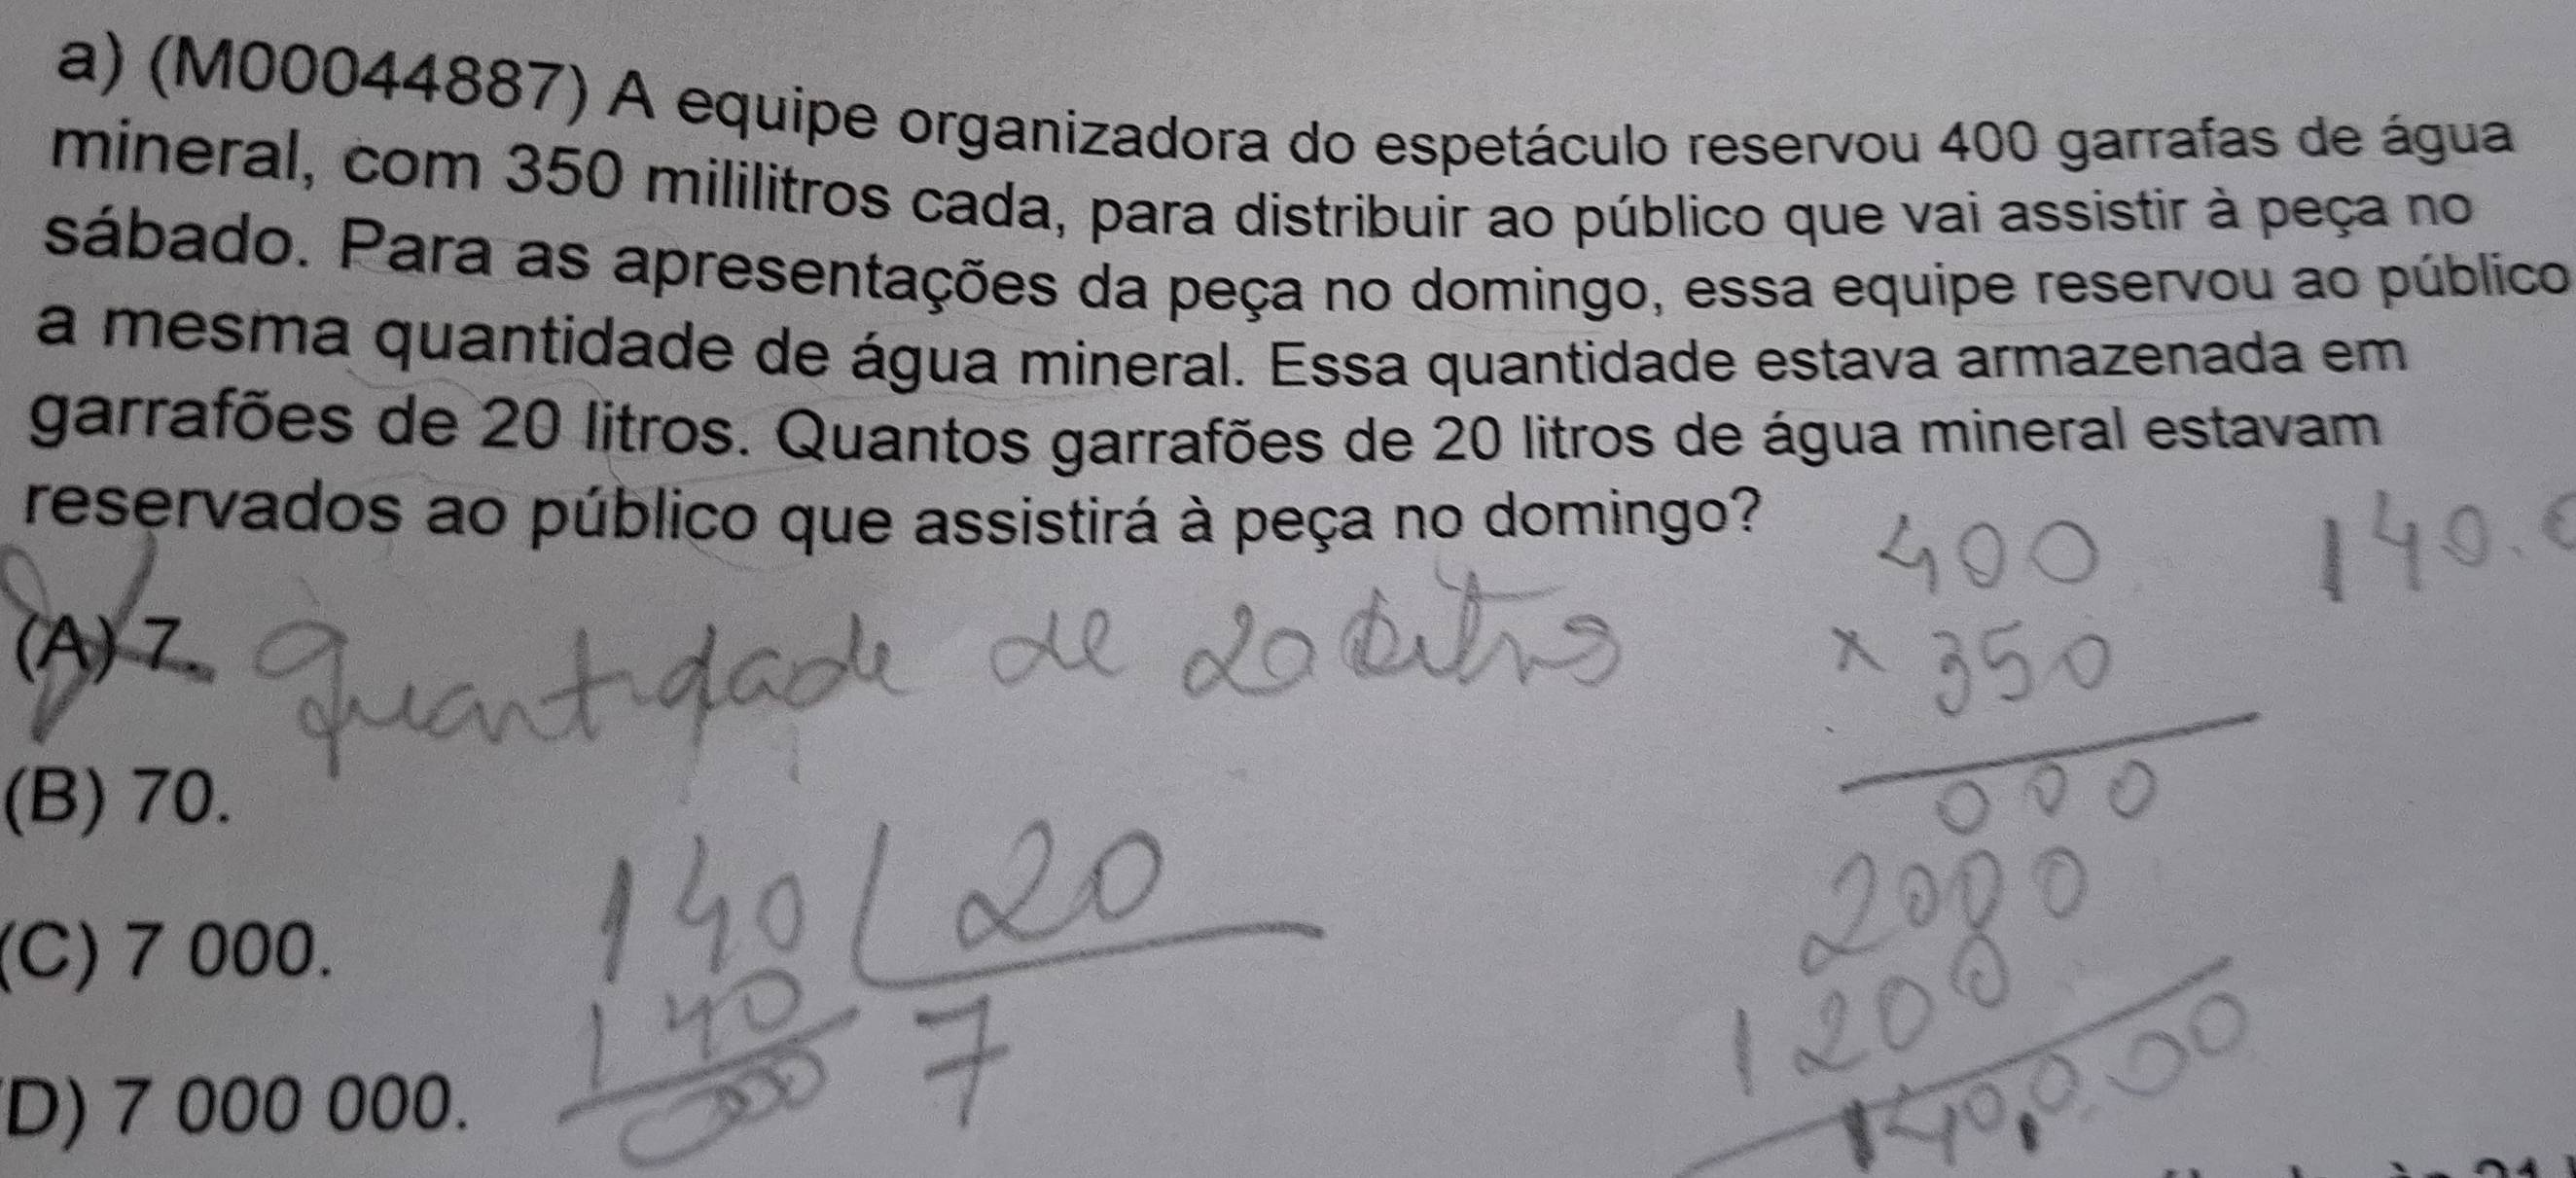 a) (M00044887) A equipe organizadora do espetáculo reservou 400 garrafas de água
mineral, com 350 mililitros cada, para distribuir ao público que vai assistir à peça no
sábado. Para as apresentações da peça no domingo, essa equipe reservou ao público
a mesma quantidade de água mineral. Essa quantidade estava armazenada em
garrafões de 20 litros. Quantos garrafões de 20 litros de água mineral estavam
reservados ao público que assistirá à peça no domingo?
(A) 7.
quantidade de 20 litros
(B) 70.
(C) 7 000.
D) 7 000 000.
140 20
140 7
400
x 350
000
2000
1200
140,000
140.